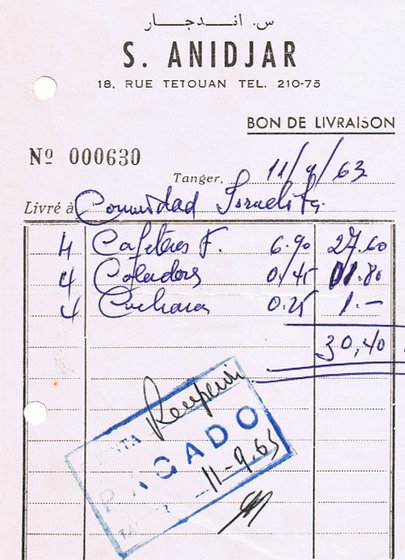 س. اندجار
S. ANIDJAR
18, RUE TETOUAN TEL. 210-75
BON DE LIVRAISON
Nº 000630
Tanger, 11/9/63
Livré à Comunidad Israelita
4 Cafeteras F. 6.90 27.60
4 Coladors 0/45 01.80
4 Cucharas 0.25 1.-
30,40
PAGADO
11-9.63